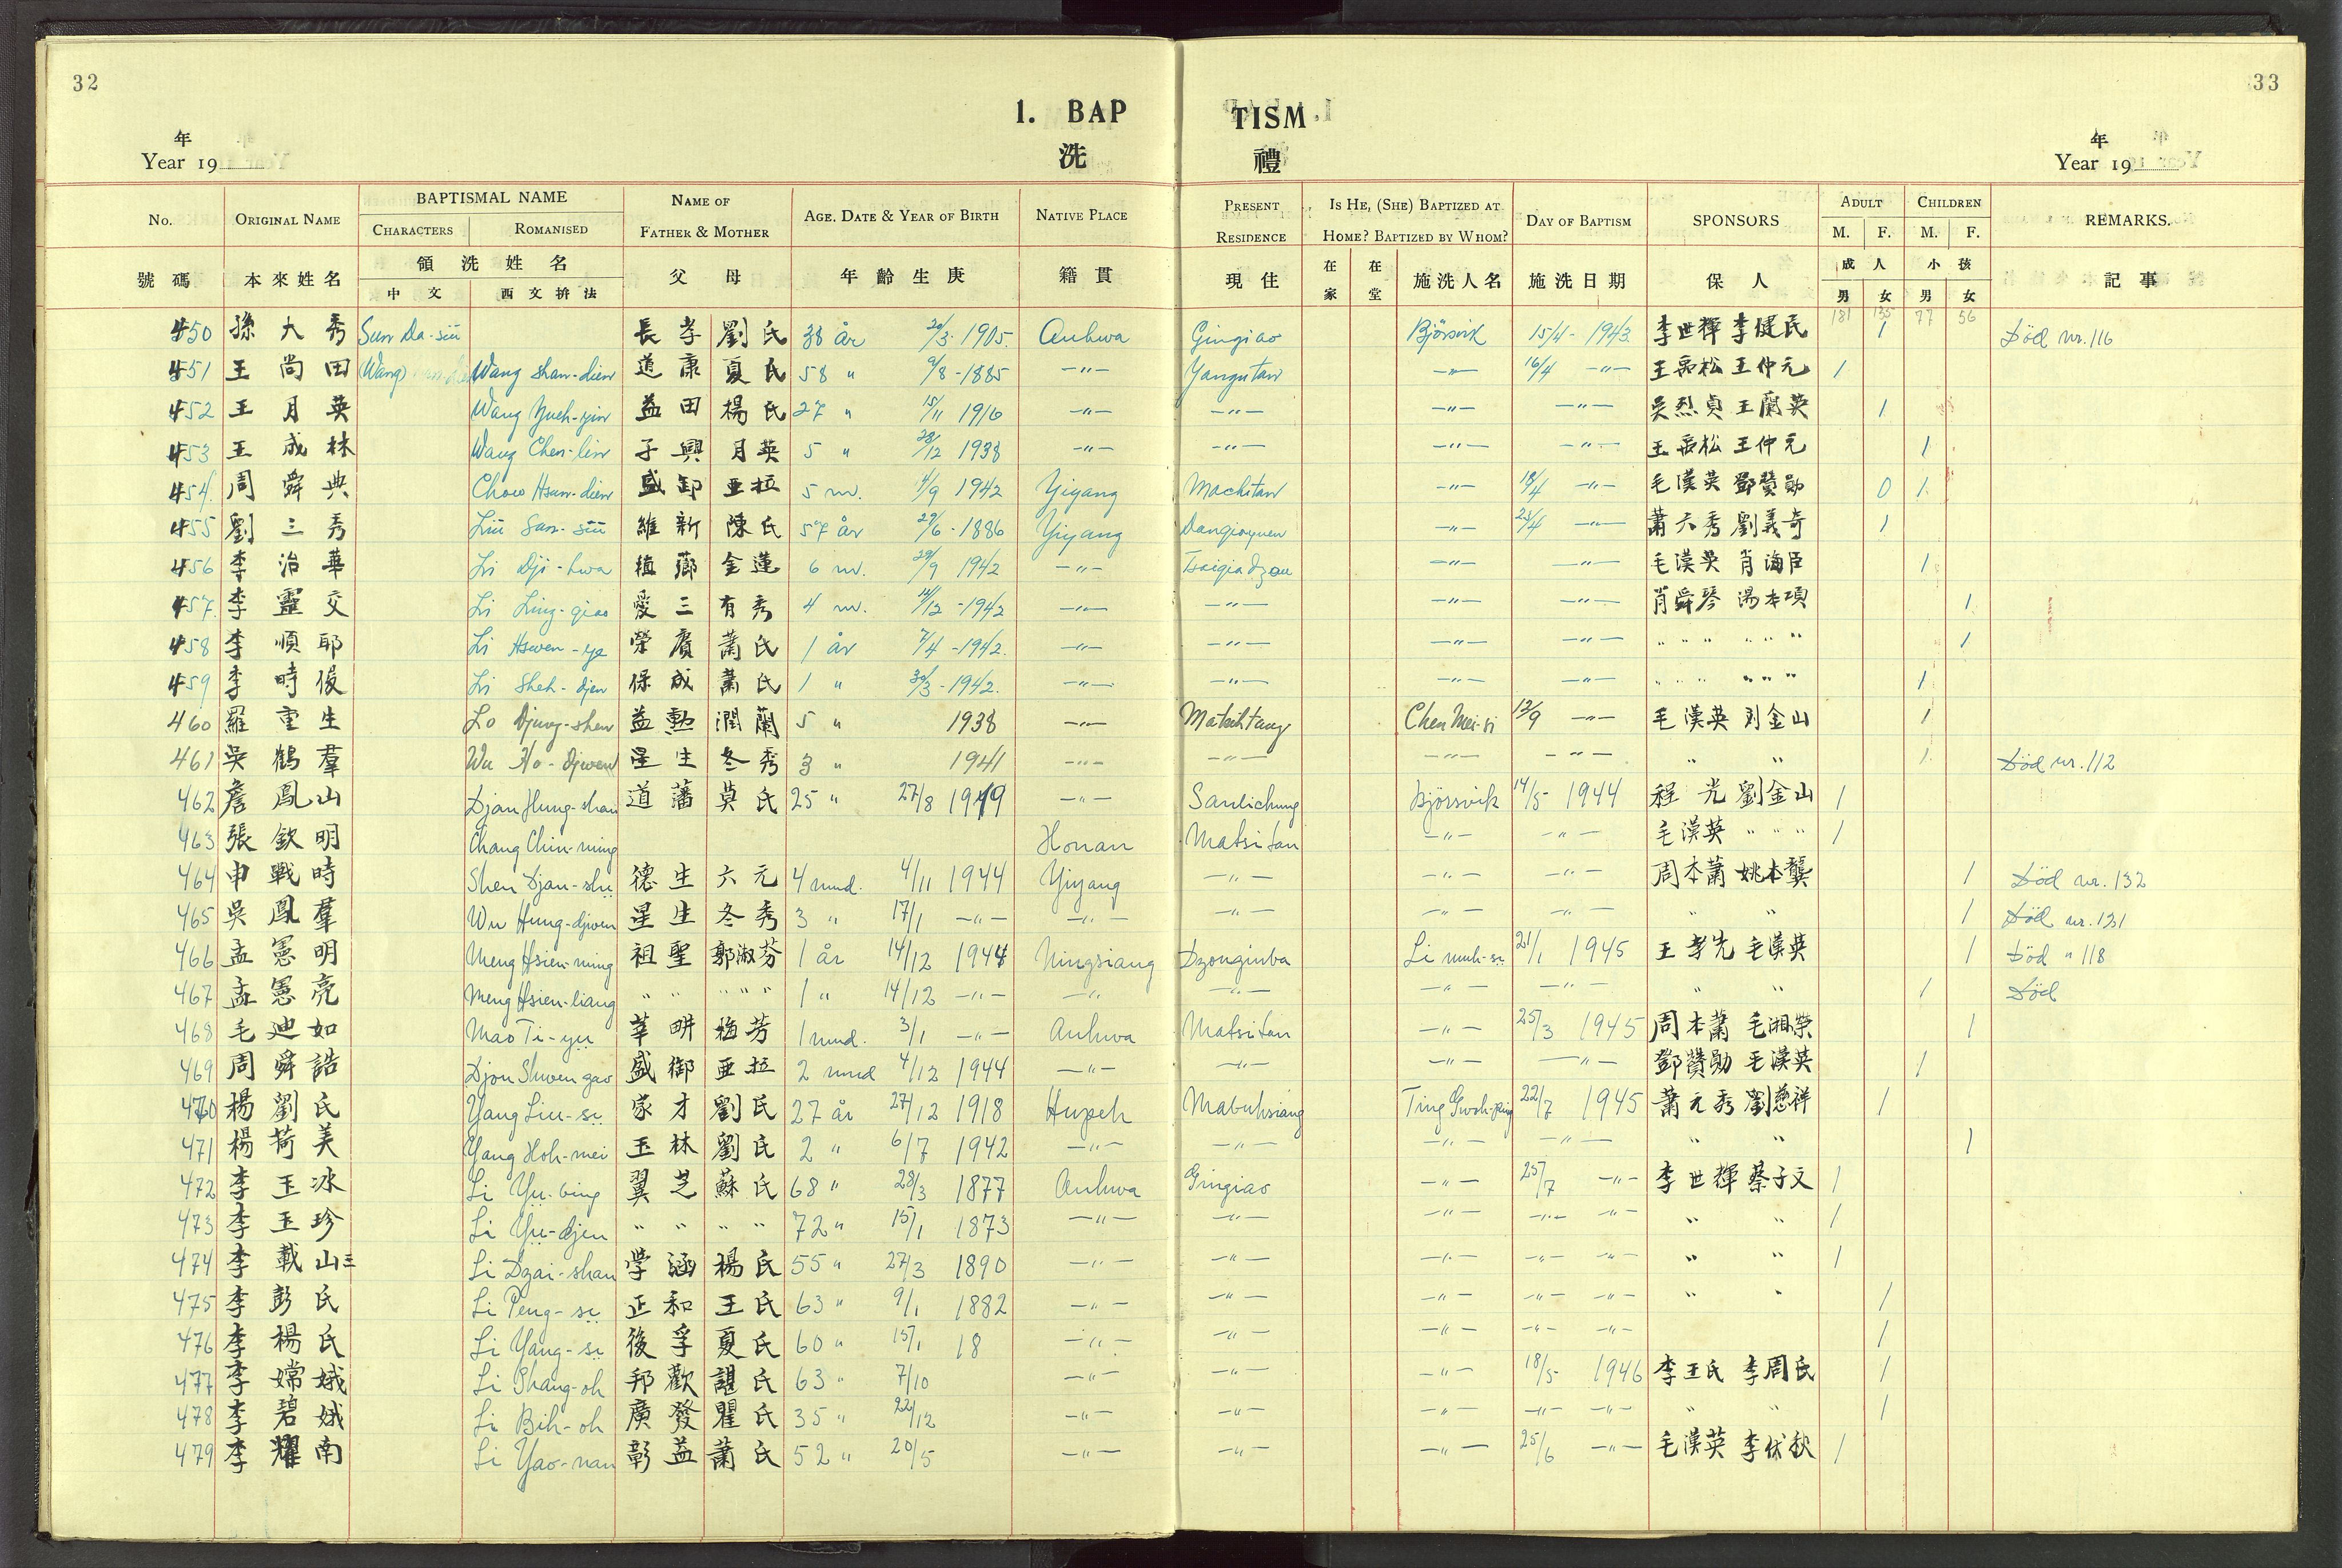 32
33
1. BAP TISM
洗 禮
年
Year 19
年
Year 19
No. ORIGINAL NAME BAPTISMAL NAME NAME OF FATHER & MOTHER AGE. DATE & YEAR OF BIRTH NATIVE PLACE PRESENT RESIDENCE IS HE, (SHE) BAPTIZED AT HOME? BAPTIZED BY WHOM? DAY OF BAPTISM SPONSORS ADULT CHILDREN REMARKS.
CHARACTERS ROMANISED M. F. M. F.
號碼 本來姓名 領洗姓名 父 母 年齡生庚 籍貫 現住 在家 在堂 施洗人名 施洗日期 保人 成人 小孩 記事
中文 西文拚法 男 女 男 女
181 135 77 56
450 孫大秀 Sun Da-siü 長孝 劉氏 38 år 20/3-1905. Anhwa Gingiao Björsvik 15/4-1943. 李世輝 李健民 1 Död nr. 116
451 王尚田 (Wang) Wang Shan-dien 道康 夏氏 58 " 9/8-1885 -"- Yangutan -"- 16/4 -"- 王禹松 王仲元 1
452 王月英 Wang Yueh-yin 益田 楊氏 27 " 15/11 1916 -"- -"- -"- -"- 吳烈貞 王蘭英 1
453 王成林 Wang Chen-lin 子興 月英 5 " 28/12 1938 -"- -"- -"- -"- 王禹松 王仲元 1
454 周舜典 Chow Hsun-dien 盛卸 亜拉 5 m. 4/9 1942 Yiyang Machitan -"- 18/4 -"- 毛漢英 鄧贊勛 0 1
455 劉三秀 Liu San-siü 維新 陳氏 57 år 29/6-1886 Yiyang Dangioyuen -"- 23/4 -"- 蕭六秀 劉義奇 1
456 李治華 Li Dji-hwa 植薌 金蓮 6 m. 29/9 1942 -"- Tsaigiadzou -"- -"- 毛漢英 肖海臣 1
457 李靈交 Li Ling-giao 愛三 有秀 4 m. 14/12-1942 -"- -"- -"- -"- 肖舜琴 湯本項 1
458 李順耶 Li Hswen-ye 榮賡 蕭氏 1 år 7/4-1942. -"- -"- -"- -"- " " " " " " 1
459 李時俊 Li Sheh-djen 保成 蕭氏 1 " 30/3-1942. -"- -"- -"- -"- " " " " " " 1
460 羅重生 Lo Djung-shen 益勲 潤蘭 5 " 1938 -"- Matsihtang Chen Mei-si 12/9 -"- 毛漢英 刘金山 1
461 吳鶴羣 Wu Ho-djwen 星生 冬秀 3 " 1941 -"- -"- -"- -"- " " 1 Död nr. 112
462 詹鳳山 Djan Hung-shan 道藩 莫氏 25 " 27/8 1919 -"- Sanlichung Björsvik 14/5 1944 程光 劉金山 1
463 張欽明 Chang Chin-ming Honan Matsitan -"- -"- 毛漢英 " " " 1
464 申戰時 Shen Djan-shi 德生 六元 4 mnd. 4/11 1944 Yiyang -"- -"- -"- 周本蕭 姚本龔 1 Död nr. 132
465 吳鳳羣 Wu Hung-djwen 星生 冬秀 3 " 17/1 -"- -"- -"- -"- -"- " " 1 Död nr. 131
466 孟憲明 Meng Hsien-ming 祖聖 郭淑芬 1 år 14/12 1944 Ningsiang Dzonginba Li muh-si 21/1 1945 王孝先 毛漢英 1 Död " 118
467 孟憲亮 Meng Hsien-liang " " " " " 1 " 14/12 -"- -"- -"- -"- -"- " " 1 Död
468 毛迪如 Mao Ti-yu 莘畊 梅芳 1 mnd. 3/1 -"- Anhwa Matsitan -"- 25/3 1945 周本蕭 毛湘榮 1
469 周舜誥 Djou Shwen gao 盛御 亜拉 2 mnd 4/12 1944 -"- -"- -"- -"- 鄧贊勛 毛漢英 1
470 楊劉氏 Yang Liu-si 家才 劉民 27 år 27/12 1918 Hupeh Mabuhsiang Ting Gwoh-ping 22/7 1945 蕭元秀 劉慈祥 1
471 楊荷美 Yang Hoh-mei 玉林 劉民 2 " 6/7 1942 -"- -"- -"- -"- " " 1
472 李玉冰 Li Yu-bing 翼芝 蘇氏 68 " 29/3 1877 Anhwa Gingiao -"- 25/7 -"- 李世輝 蔡子文 1
473 李玉珍 Li Yu-djen " " " " 72 " 15/1 1873 -"- -"- -"- -"- -"- " " 1
474 李載山三 Li Dzai-shan 学涵 楊氏 55 " 27/3 1890 -"- -"- -"- -"- -"- " " 1
475 李彭氏 Li Peng-si 正和 王氏 63 " 9/1 1882 -"- -"- -"- -"- -"- " " 1
476 李楊氏 Li Yang-si 後孚 夏氏 60 " 15/1 18 -"- -"- -"- -"- -"- 1
477 李嫦娥 Li Chang-oh 邦歡 諶氏 63 " 7/10 -"- -"- -"- 18/5 1946 李王氏 李周氏 1
478 李碧娥 Li Bih-oh 廣發 瞿氏 35 " 22/12 -"- -"- -"- -"- -"- " " 1
479 李耀南 Li Yao-nan 彰益 蕭氏 52 " 20/5 -"- -"- -"- 25/6 -"- 毛漢英 李伏秋 1